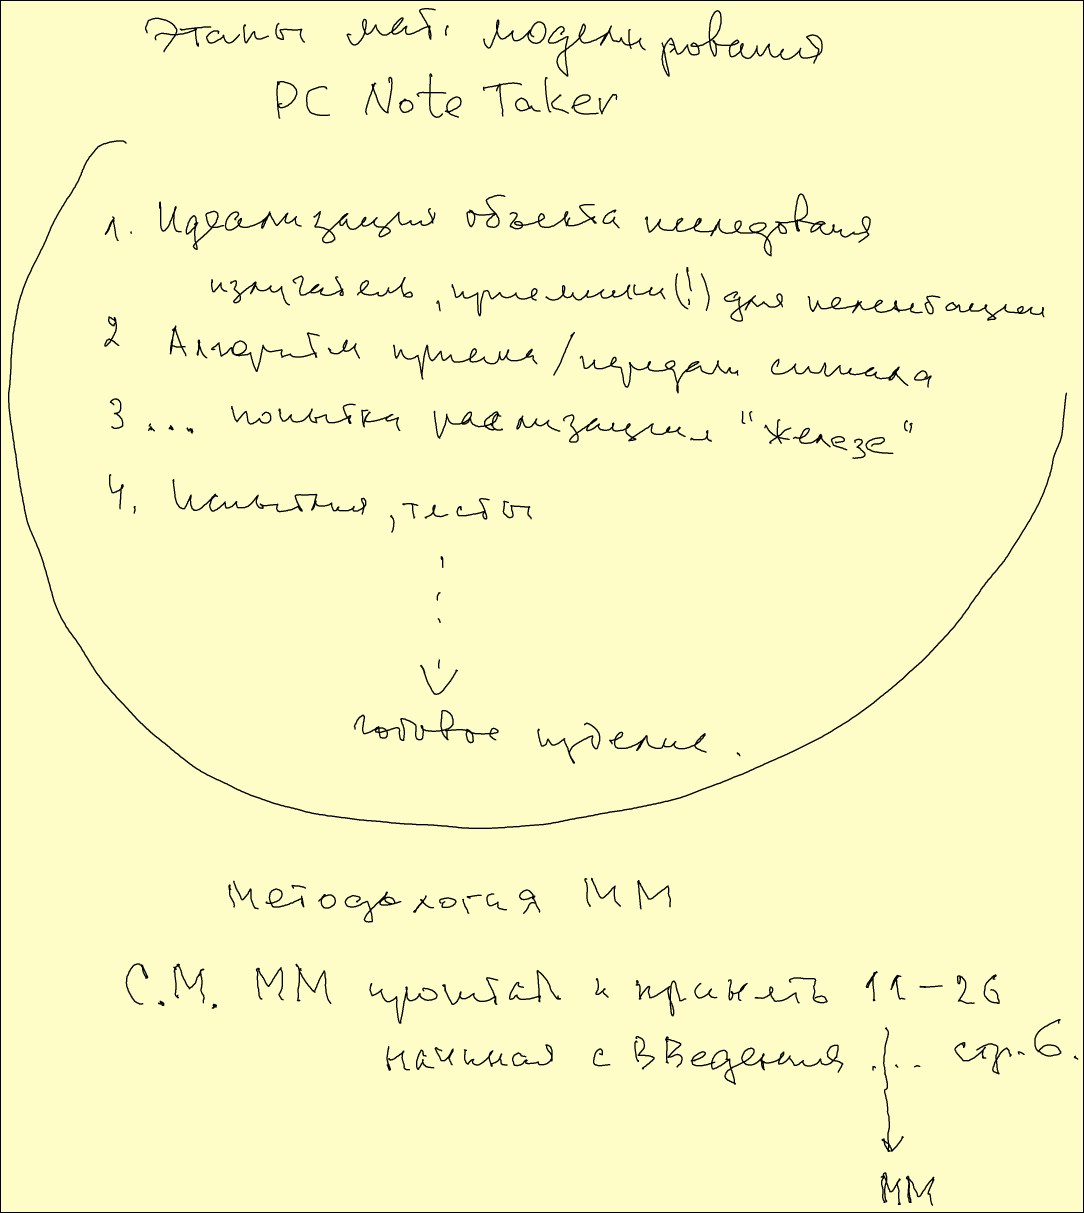 Этапы мат. моделирования
PC Note Taker
1. Идеализация объекта исследования
излучатель, приемники(!) для пеленгации
2 Алгоритм приема / передачи сигнала
3 ... попытка реализации "железе"
4. Испытания, тесты
готовое изделие.
Методология ММ
С.М. ММ прочитать и принять 11-26
начиная с ВВедения ... стр. 6.
ММ